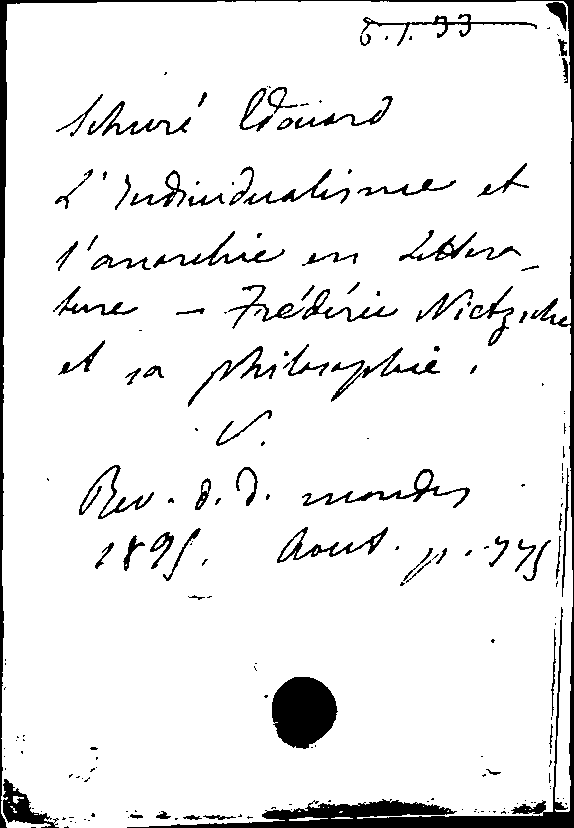 6.1.33
Schuré Edouard
L'Individualisme et
l'anarchie en littera-
ture - Frédéric Nietzsche
et sa philosophie.
V.
Rev. d. d. mondes
1895. Aout. p. 775